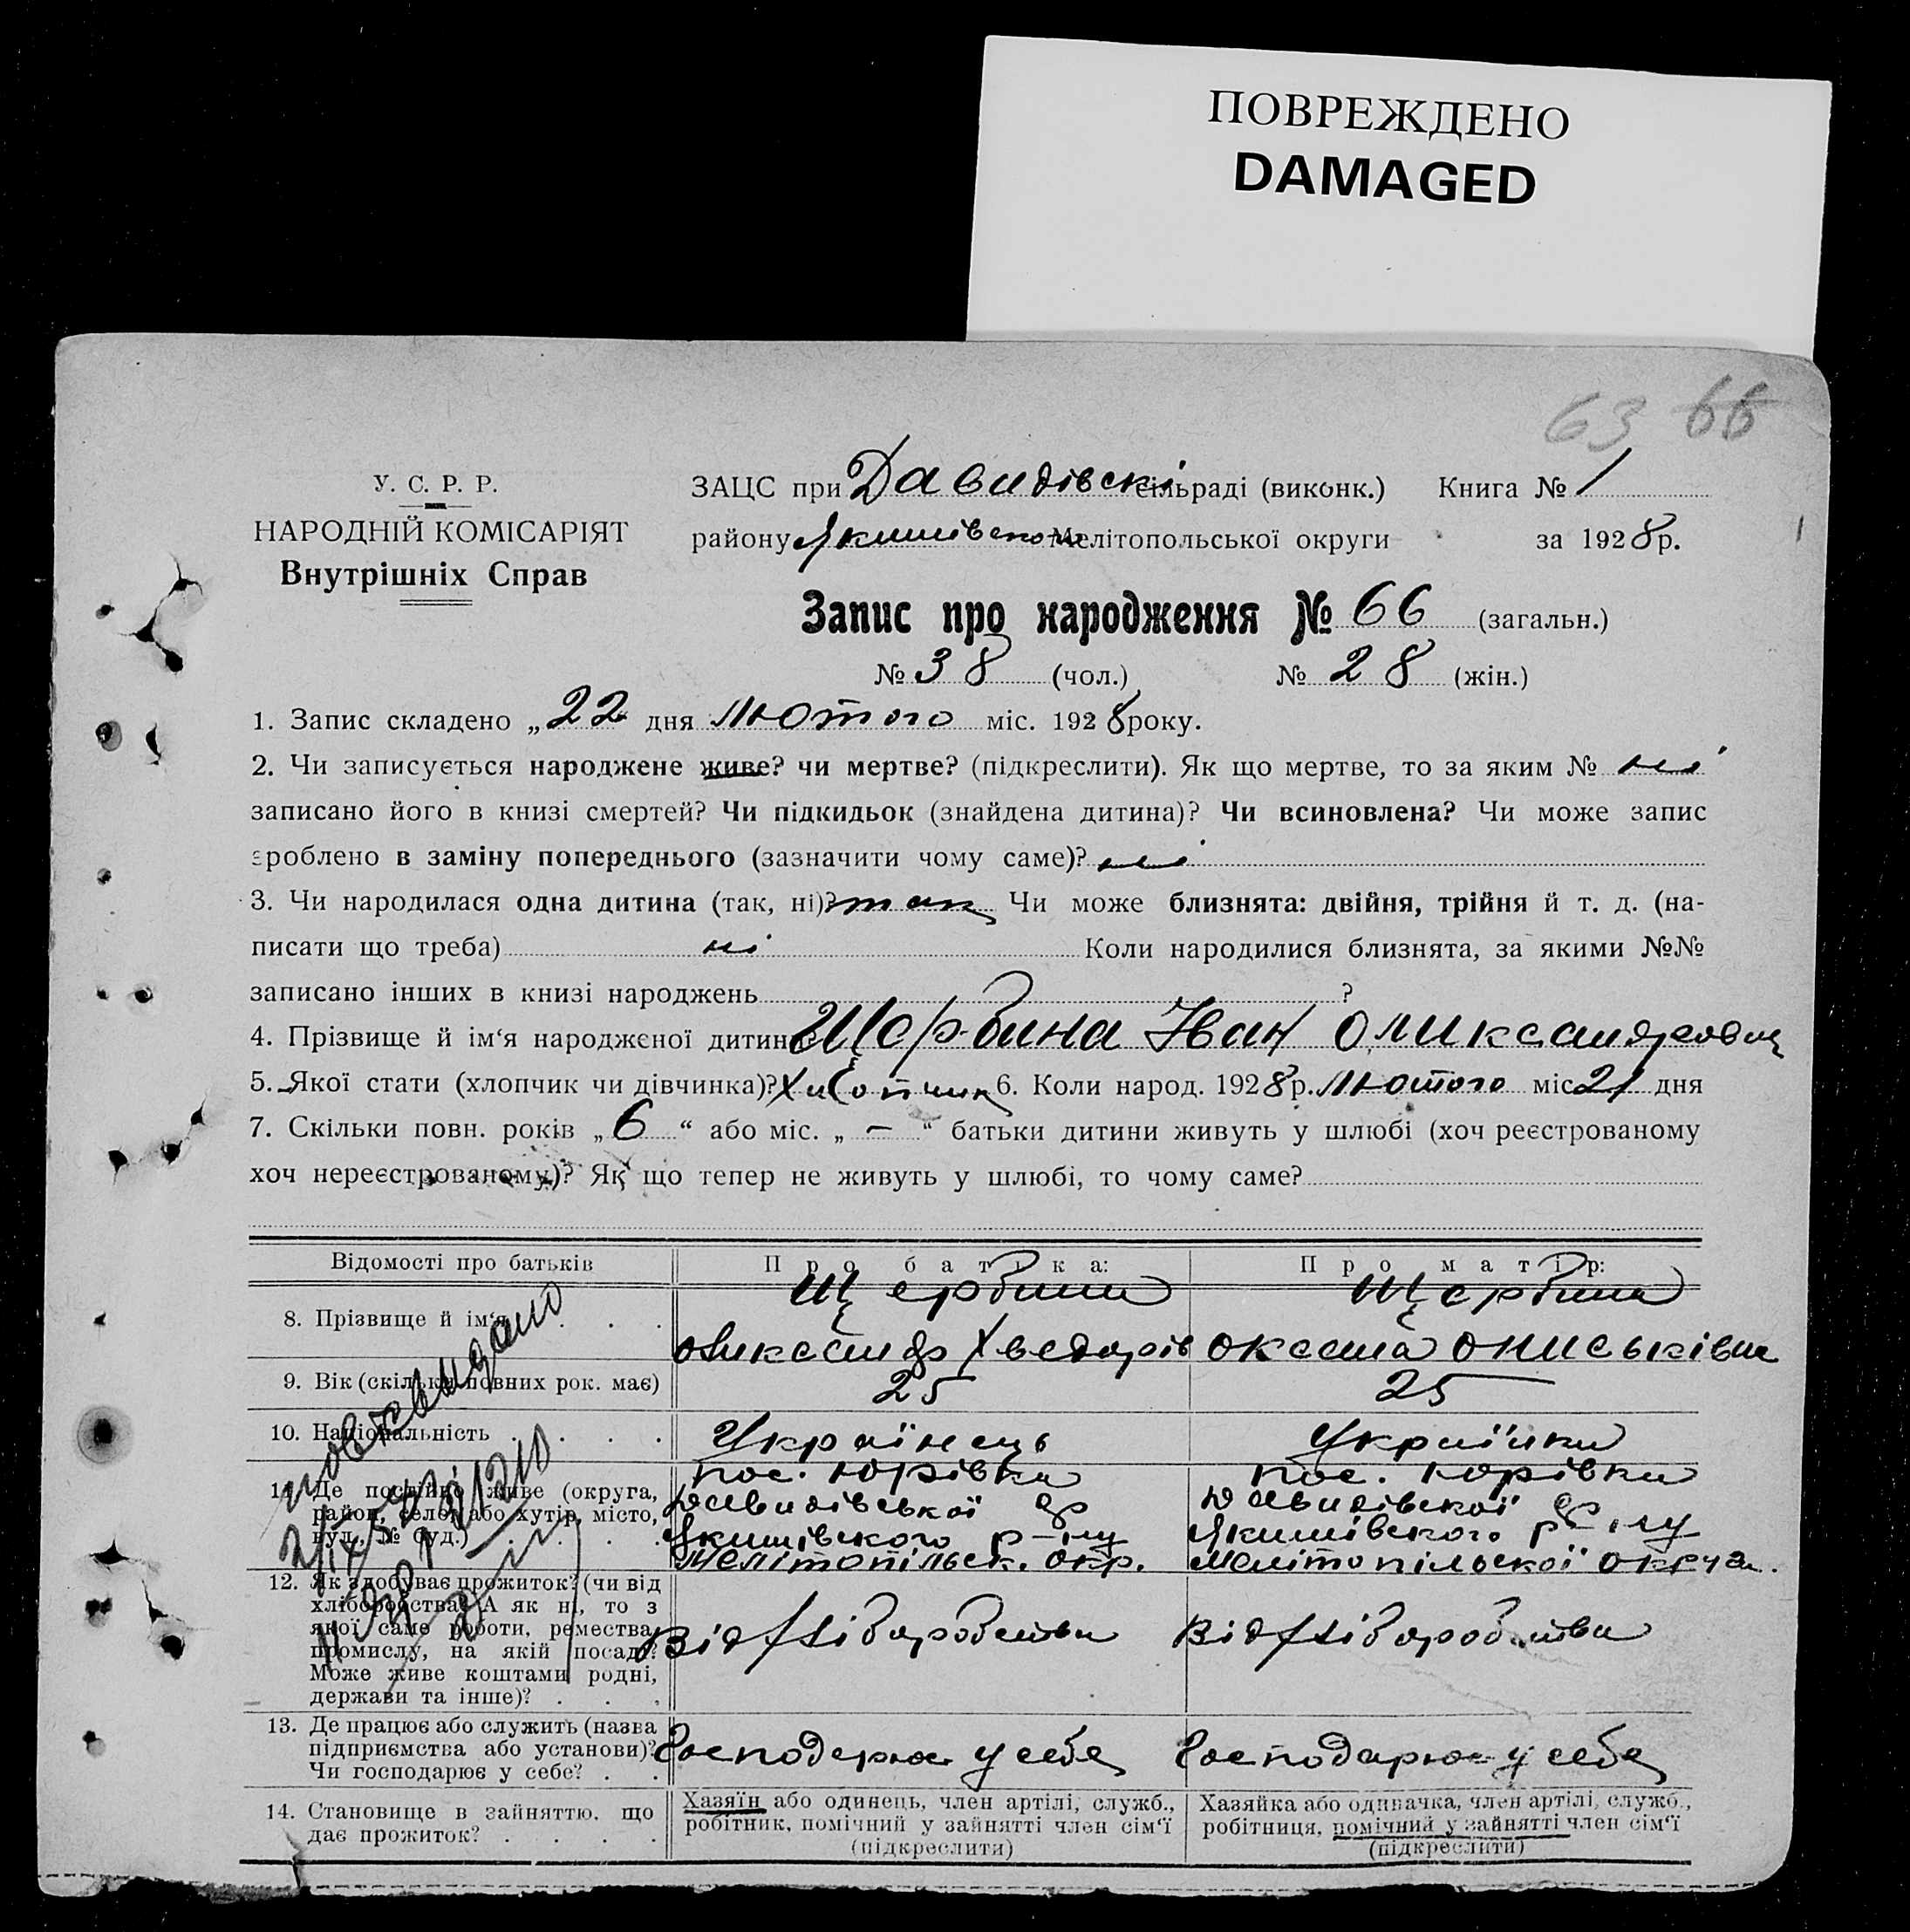 ПОВРЕЖДЕНО
DAMAGED
63 66
У. С. Р. Р.
НАРОДНІЙ КОМІСАРІЯТ
Внутрішніх Справ
ЗАЦС при Давидівскі сільраді (виконк.) Книга № 1
району Якимівского Мелітопольської округи за 1928 р.
Запис про народження № 66 (загальн.)
№ 38 (чол.) № 28 (жін.)
1. Запис складено „22" дня Лютого міс. 1928 року.
2. Чи записується народжене живе? чи мертве? (підкреслити). Як що мертве, то за яким № ні
записано його в книзі смертей? Чи підкидьок (знайдена дитина)? Чи всиновлена? Чи може запис
зроблено в заміну попереднього (зазначити чому саме)? ні
3. Чи народилася одна дитина (так, ні)? так Чи може близнята: двійня, трійня й т. д. (на-
писати що треба) ні Коли народилися близнята, за якими №№
записано інших в книзі народжень ?
4. Прізвище й ім'я народженої дитини Щербина Іван Олександрович
5. Якої стати (хлопчик чи дівчинка)? Хлопчик 6. Коли народ. 1928 р. Лютого міс 21 дня
7. Скільки повн. років „6" або міс. „—" батьки дитини живуть у шлюбі (хоч реєстрованому
хоч нереєстрованому)? Як що тепер не живуть у шлюбі, то чому саме?
Відомості про батьків Про батька: Про матір:
8. Прізвище й ім'я . . . Щербина Щербина
Олександр Хведорів Оксана Ониськівна
9. Вік (скільки повних рок. має) 25 25
10. Національність . . . . Українець Українка
11. Де постійно живе (округа,
район, село, або хутір, місто,
вул., № буд.) . . . .
пос. Юрівка
Давидівської с/р
Якимівского р-ну
Мелітопільск. окр.
пос. Юрівка
Давидівской с/р
Якимівского р-ну
Мелітопільскої округи.
12. Як здобуває прожиток? (чи від
хліборобства? А як ні, то з
якої саме роботи, ремества,
промислу, на якій посаді?
Може живе коштами родні,
держави та інше)? . . .
Від хліборобства Від хліборобства
13. Де працює або служить (назва
підприємства або установи)?
Чи господарює у себе? . .
Господарює у себе Господарює у себе
14. Становище в зайняттю, що
дає прожиток? . . . .
Хазяїн або одинець, член артілі, служб.,
робітник, помічний у зайнятті член сім'ї
(підкреслити)
Хазяйка або одиначка, член артілі, служб.,
робітниця, помічний у зайнятті член сім'ї
(підкреслити)